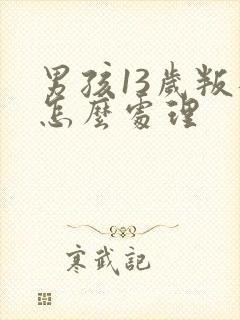 男孩13歲叛
怎麼處理
寒武記